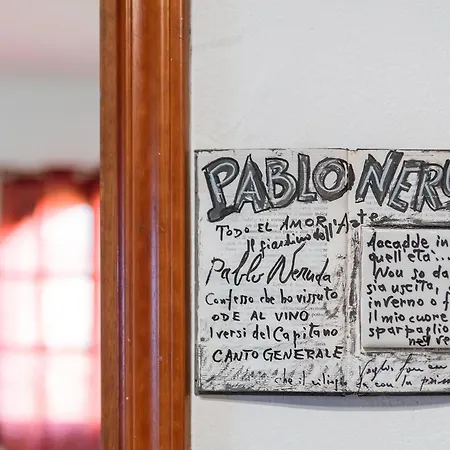 PABLO NERU
TODO EL AMOR
Il giardino dell'Arte
Pablo Neruda
Confesso che ho vissuto
ODE AL VINO
I versi del Capitano
CANTO GENERALE
Accadde in
quell'età...
Non so da
sia uscita,
inverno o f
Il mio cuore
sparpaglio
nel ve
che il con la